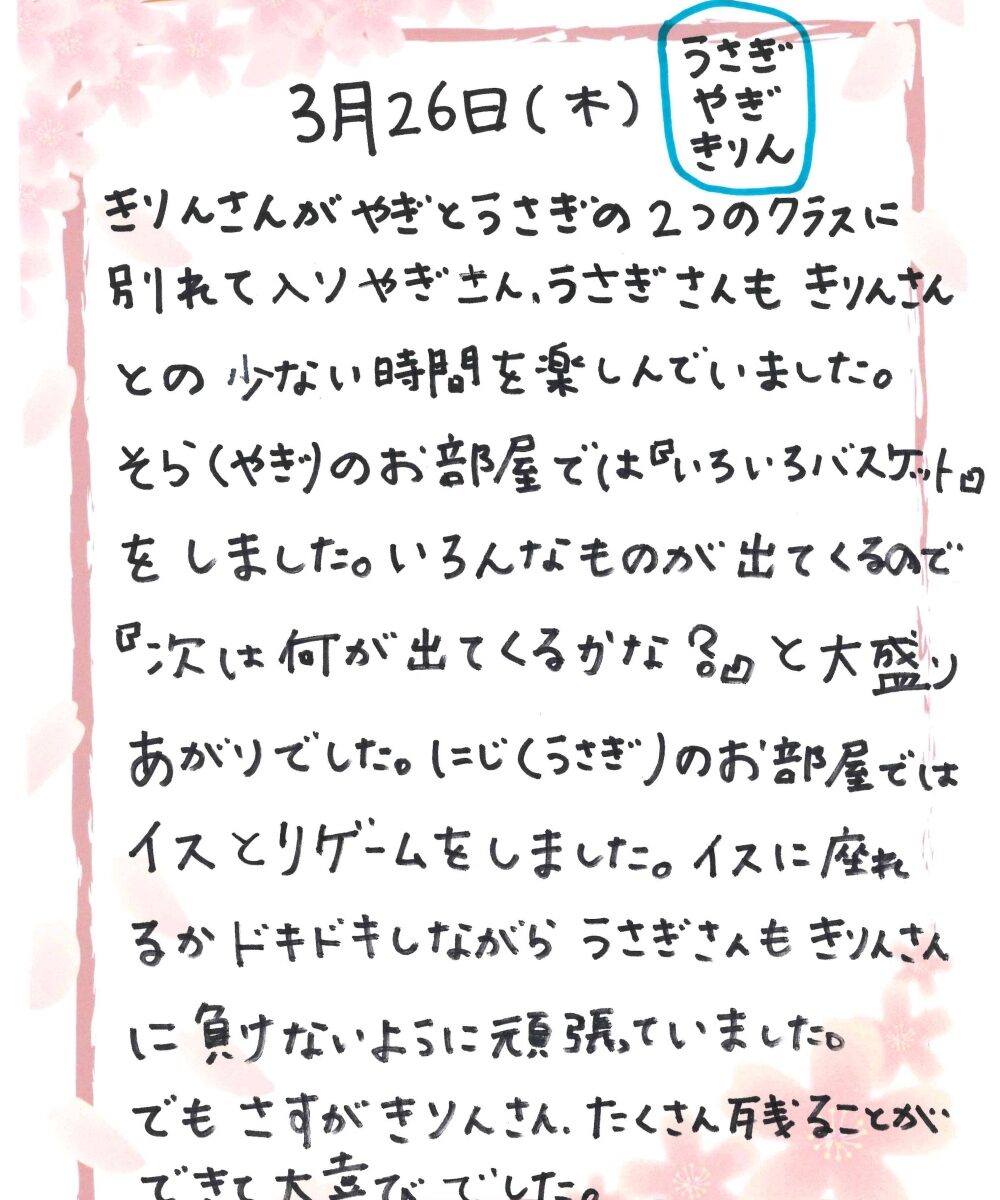 3月26日(木)
うさぎ
やぎ
きりん
きりんさんがやぎとうさぎの2つのクラスに
別れて入りやぎさん、うさぎさんも きりんさん
との少ない時間を楽しんでいました。
そら(やぎ)のお部屋では『いろいろバスケット』
をしました。いろんなものが出てくるので
『次は何が出てくるかな?』と大盛り
あがりでした。にじ(うさぎ)のお部屋では
イスとりゲームをしました。イスに座れ
るかドキドキしながら うさぎさんも きりんさん
に負けないように頑張っていました。
でも さすがきりんさん、たくさん残ることが
できて大喜びでした。